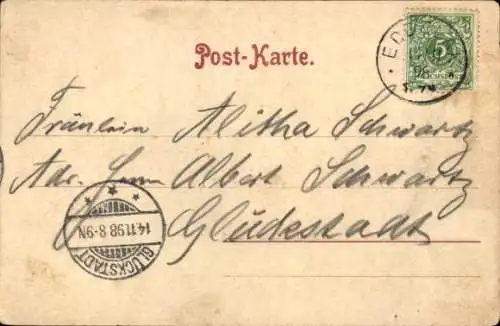 Post-Karte.
5
Fräulein Alitha Schwartz
Adr. Herrn Albert Schwartz
Glückstadt
14.11.98.8-9N
GLÜCKSTADT